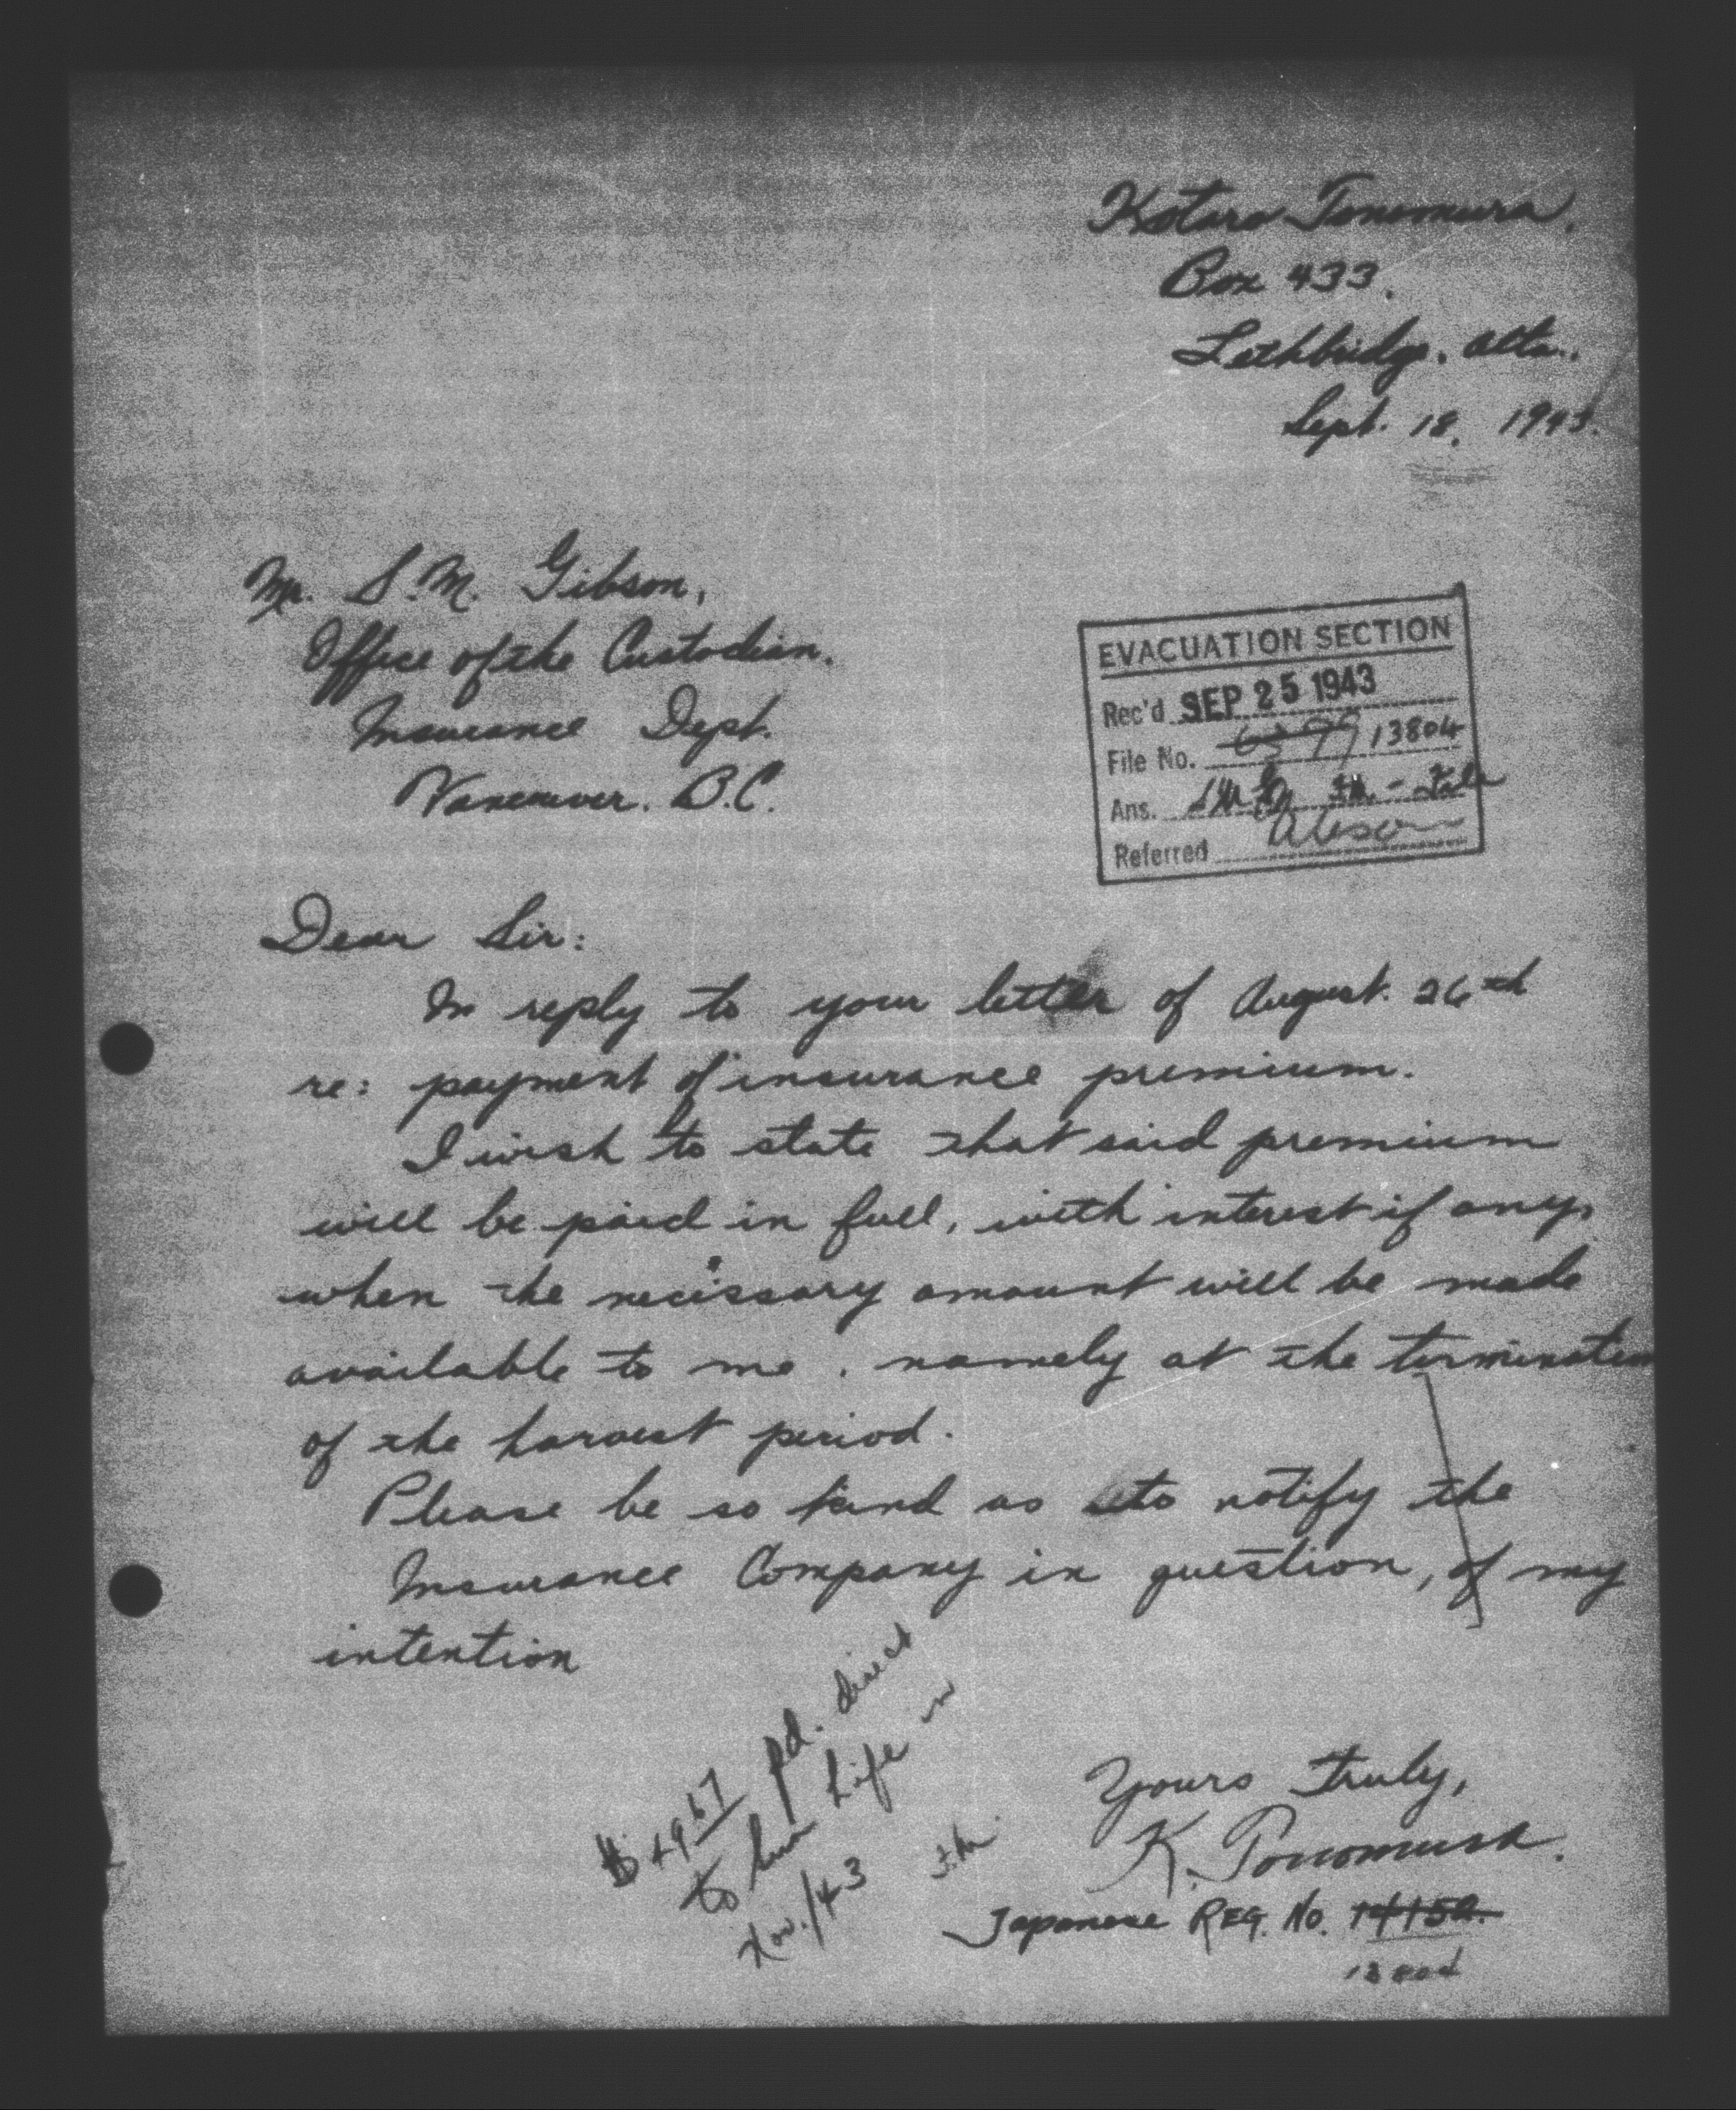 Kotaro Tonomura.
Box 433.
Lethbridge, Alta.,
Sept. 18, 1943.
Mr. S.M. Gibson,
Office of the Custodian.
Insurance Dept.
Vancouver. B.C.
EVACUATION SECTION
Rec'd SEP 25 1943
File No. 13804
Ans.
Referred
Dear Sir:
In reply to your letter of August. 26th
re: payment of insurance premium.
I wish to state that said premium
will be paid in full, with interest if any,
when the necissary amount will be made
available to me, namely at the termination
of the harvest period.
Please be so kind as to notify the
Insurance Company in question, of my
intention
pd. direct
to Sun Life in
Nov./43
Yours truly,
K. Tonomura.
Japanese REG. No. 14152.
13804